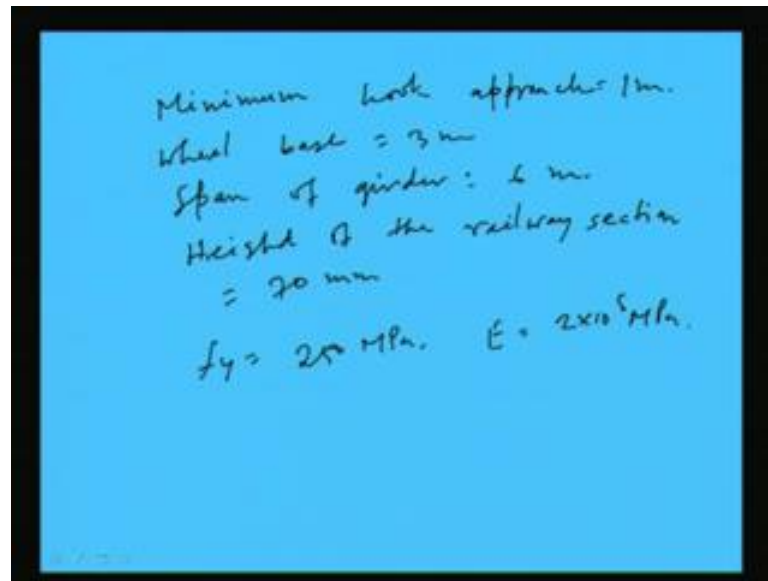 Minimum hook approach = 1m.
Wheel base = 3 m
Span of girder = 6 m.
Height of the railway section
= 70 mm
fy = 250 MPa. E = 2x10⁵ MPa.